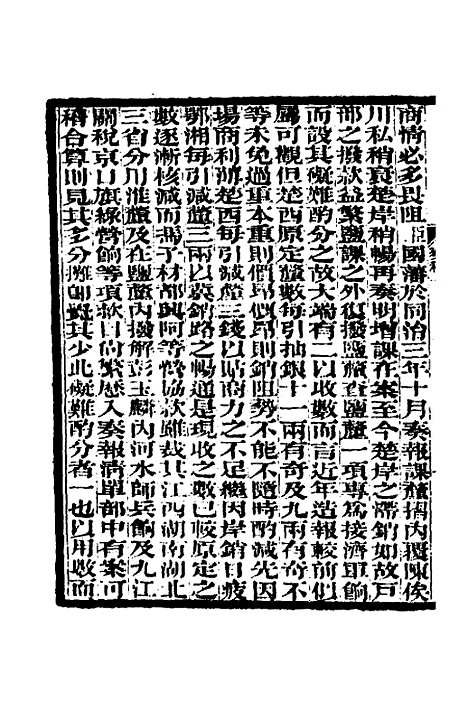 商情必多畏阻臣國藩於同治三年十月奏報課釐摺內覆陳俟
川私稍衰楚岸稍暢再奏明增課在案至今楚岸之滯銷如故戶
部之撥款益繁鹽課之外復撥鹽釐查鹽釐一項專為接濟軍餉
而設其礙難酌分之故大端有二以收數而言近年造報較前似
屬可觀但楚西原定釐數每引抽銀十一兩有奇及九兩有奇不
等未免過重本重則價昂價昂則銷阻勢不能不隨時酌減先因
場商利薄楚西每引減釐三錢以貼商力之不足繼因岸銷日疲
鄂湘每引減釐三兩以冀銷路之暢通是現收之數已較原定之
數逐漸核減而馮子材都興阿等營協款雖裁其江西湖南湖北
三省分川淮釐及在鹽釐內撥解彭玉麟內河水師兵餉及九江
關稅京口旗綠營餉等項款目尚繁歷入奏報清單部中有案可
稽合算則見其多分攤即覺其少此礙難酌分者一也以用數而